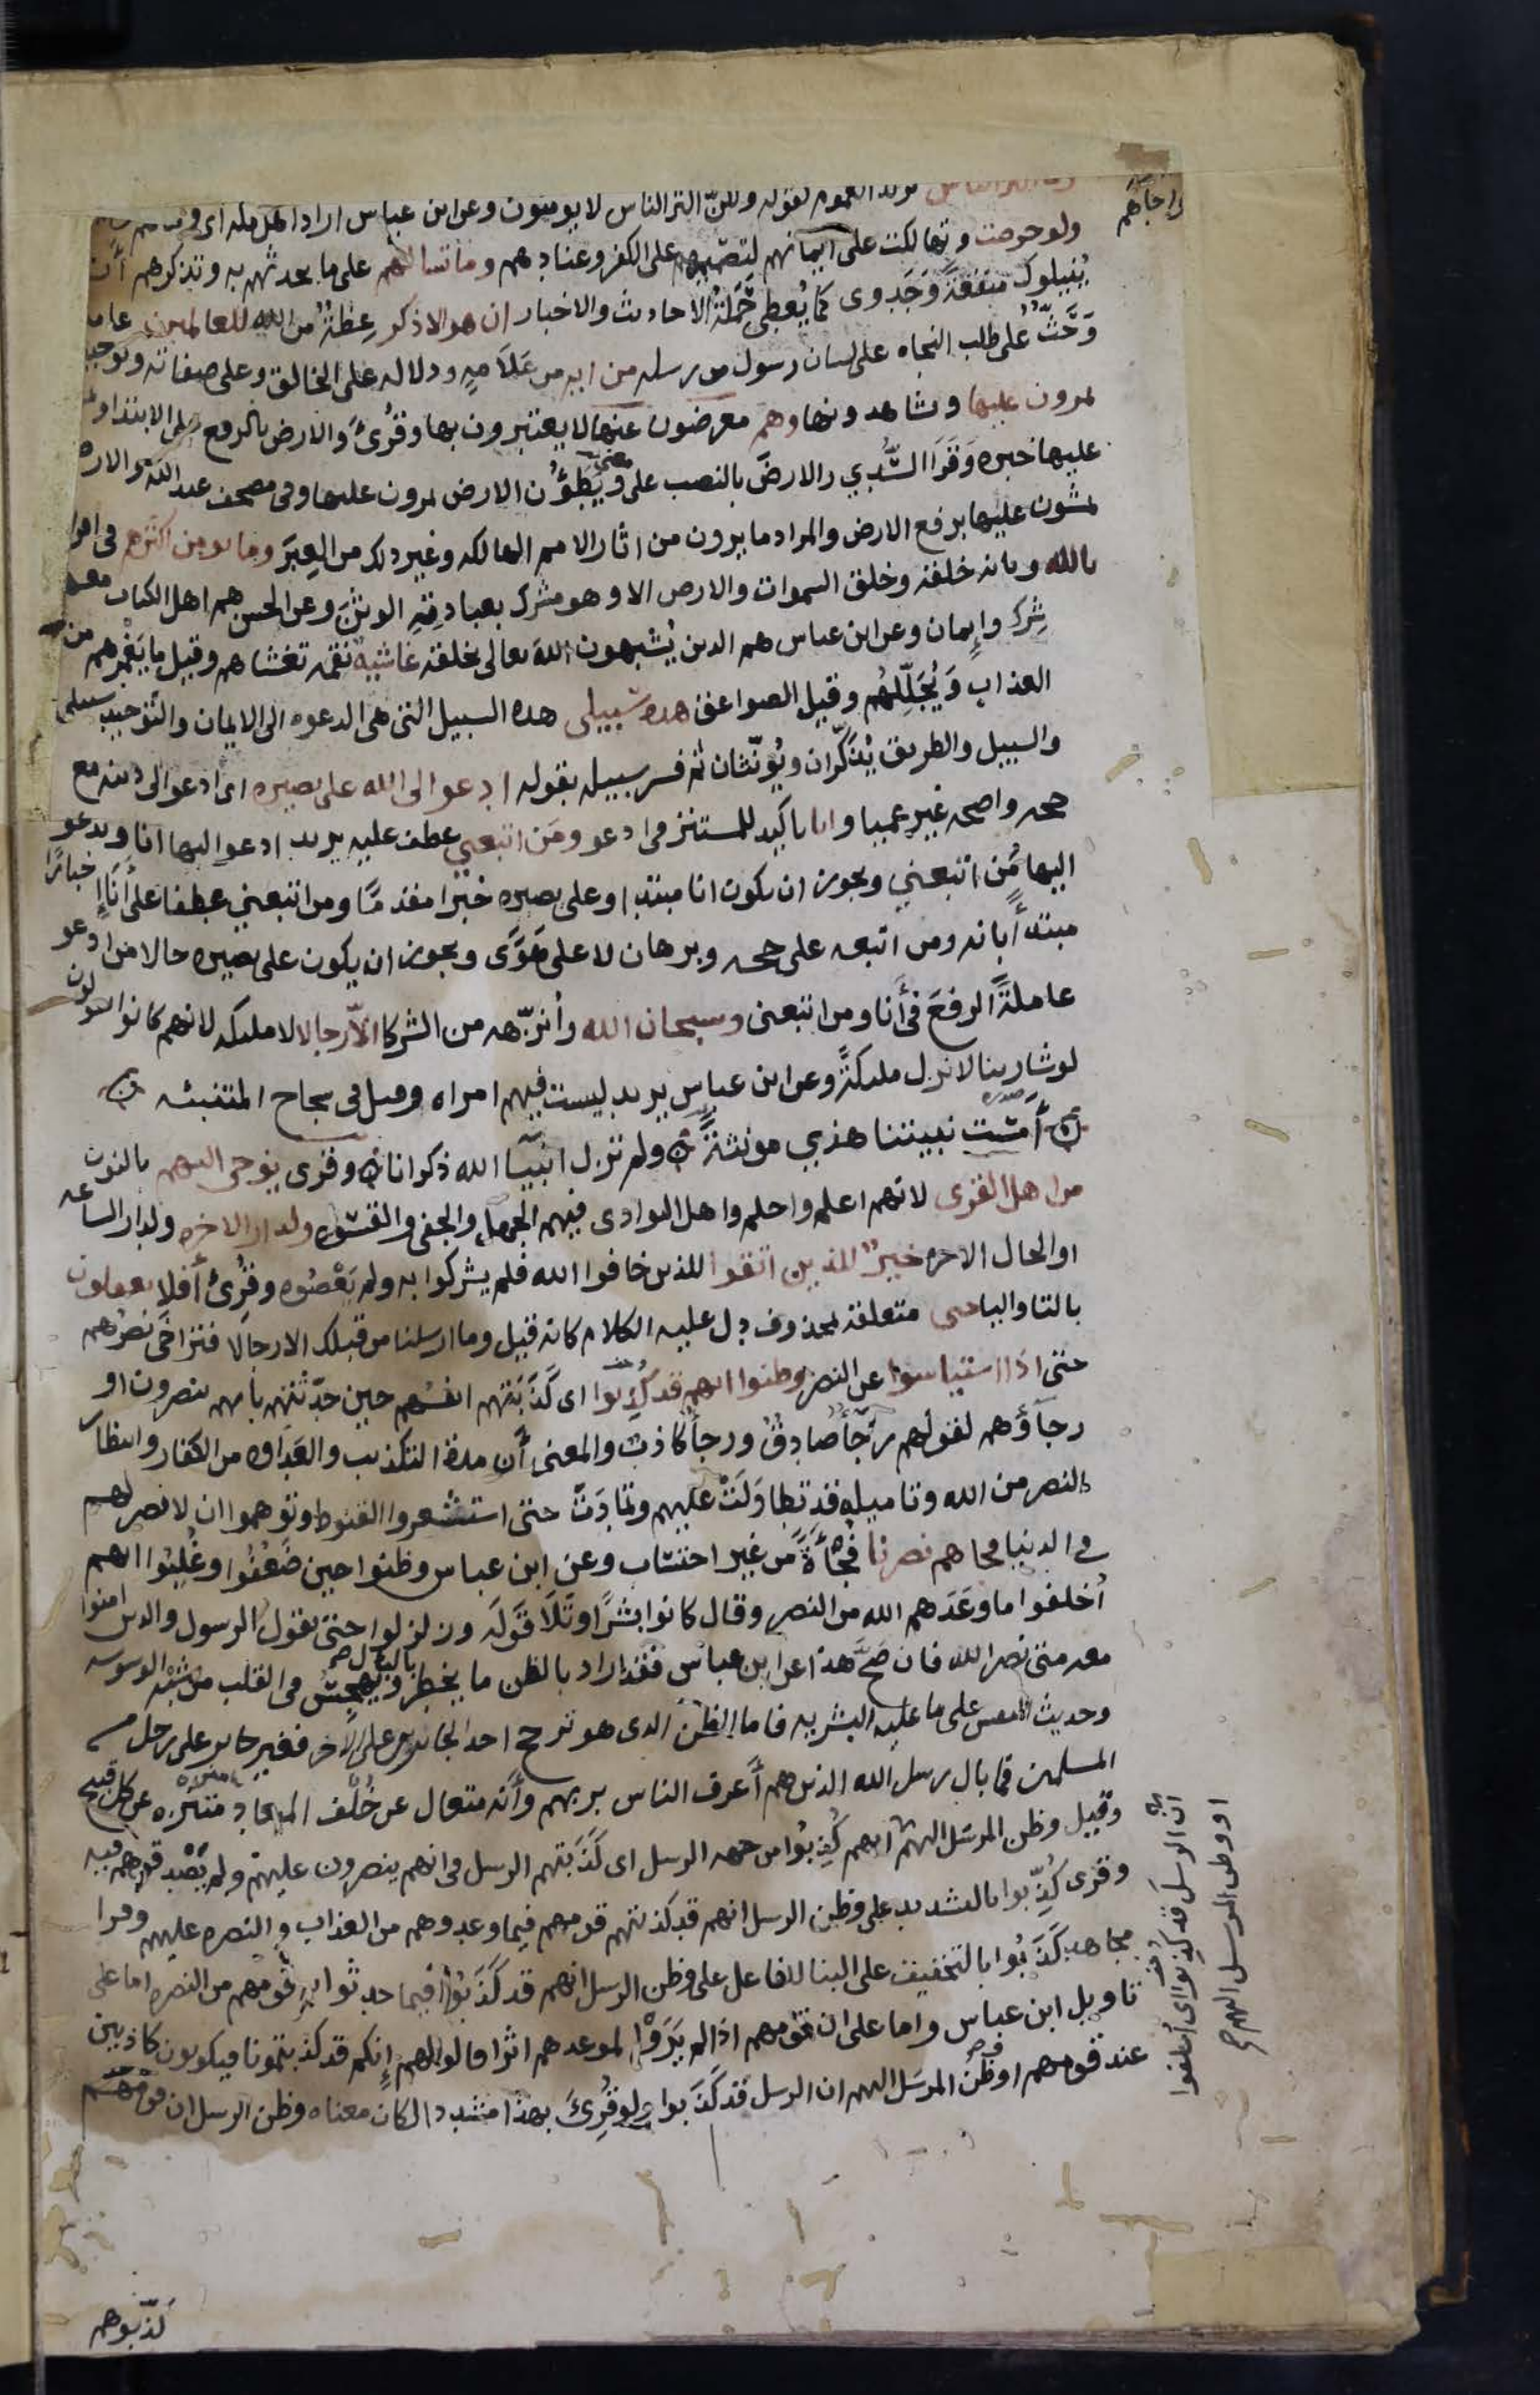 وما اكثر الناس يريد العموم لقوله ولكن اكثر الناس لا يومنون وعن ابن عباس اراد اهل مكه اى وما هم
ولو حرصت وتهالكت على ايمانهم لتصميمهم على الكفر وعنادهم وما تسالهم على ما تحدثهم به وتذكرهم أن
يُنيلوك منفعةً وَجَدوى كما يُعطى حَمَلَةُ الاحاديث والاخبار ان هو الا ذكر عِظَةٌ من الله للعالمين عامه
وَحَثٌّ على طلب النجاه على لسان رسول من رسله من ايه من عَلَامةٍ ودلاله على الخالق وعلى صفاته وتوحيد
يمرون عليها ويشاهدونها وهم معرضون عنها لا يعتبرون بها وقُرئ والارض بالرفع على الابتدا
عليها خبره وَقَرَا السُّدي والارضَ بالنصب على ويَطَؤُن الارض يمرون عليها وفى مصحف عبد الله والارض
يمشون عليها برفع الارض والمراد ما يرون من اثار الامم الهالكه وغير ذلك من العِبَر وما يومن اكثرهم فى اقرا
بالله وبانه خلقه وخلق السموات والارض الا وهو مشرك بعبادتِهِ الوثَنَ وعن الحسن هم اهل الكتاب معهم
شِرك وإيمان وعن ابن عباس هم الدين يُشبهون اللهَ تعالى بخلقه غاشيه نقمه تغشاهم وقيل ما يَغْمُرهم من
العذاب وَيُجَلّلهُم وقيل الصواعق هذه سبيلى هذه السبيل التى هى الدعوه الى الايمان والتوحيد سبيلى
والسبيل والطريق يُذَكَّران ويُؤَنَّثان ثم فسر سبيله بقوله ادعو الى الله على بصيره اى ادعو الى دينه مع
حجه واضحه غير عميا وانا تاكيد للمستتر فى ادعو ومَن اتبعني عطف عليه يريد ادعو اليها انا ويدعو
اليها مَن اتبعني ويجوز ان يكون انا مبتدا وعلى بصيره خبرا مقدمًا ومن اتبعني عطفا على أَنَا إخبارًا
مبتدأً بانه ومن اتبعه على حجه وبرهان لا على هَوًى ويجوز ان يكون على بصيره حالا من ادعو
عاملةً الرفعَ فى أَنا ومن اتبعنى وسبحان الله وأُنزّهه من الشركا الّا رجالا لا ملىكه لانهم كانوا يقولون
لو شا ربنا لانزل ملىكةً وعن ابن عباس يريد ليست فيهم امراه وقيل فى سجاح المتنبئه
أَمْسَت نبيتنا هذي مونثةً ولم تزل انبيآ الله ذكرانا وقرى يوحى اليهم بالنون
من اهل القرى لانهم اعلم واحلم واهل البوادى فيهم الجهل والجفى والقسوه ولدار الاخره ولدار الساعه
او الحال الاخره خيرٌ للذين اتقوا للذين خافوا الله فلم يشركوا به ولم يَعْصُوه وقُرِئ أفلا يعقلون
بالتا واليا حتى متعلقه بمحذوف دل عليه الكلام كانه قيل وما ارسلنا من قبلك الا رجالا فتراخى نصرُهم
حتى اذا استياسوا عن النصر وظنوا انهم قد كُذِبوا اى كَذَبَتهم انفسُهم حين حدّثتهم بانهم ينصرون او
رجآؤهم لقولهم رَجَآءٌ صادِقٌ ورجاءٌ كاذب والمعنى أن مدة التكذيب والعَدَاوه من الكفار وانتظار
النصر من الله وتاميله قد تطاوَلَتْ عليهم وتمادَتْ حتى استشعروا القنوط وتوهموا ان لا نصر لهم
فى الدنيا فجاهم نصرنا فَجْأةً من غير احتساب وعن ابن عباس وظنوا حين ضَعُفُوا وغُلِبُوا انهم
أُخلفوا ما وَعَدَهم الله من النصر وقال كانوا بشرًا وتَلَا قَولَه وزلزلوا حتى يقول الرسول والذين امنوا
معه متى نصر الله فان صَحَّ هذا عن ابن عباس فقد اراد بالظن ما يخطر بالبال ويهجِسُ فى القلب من شبْه الوسوسه
وحديث النفس على ما عليه البشريه فاما الظن الدى هو ترجح احد الجائزين على الاخر فغير جايز على رجل من
المسلمين فما بال رسل الله الذين هم أعرف الناس بربهم وأنه متعال عن خُلْف الميعاد منزه عن كل قبيح
وقيل وظن المرسَل اليهم انهم كُذِبُوا من جهه الرسل اى كَذَبَتهم الرسل فى انهم ينصرون عليهم ولم يَصْدقوهم فيه
وقرى كُذِّبوا بالتشديد على وظن الرسل انهم قد كذبتهم قومهم فيما وعدوهم من العذاب والنصره عليهم وقرا
مجاهد كَذَبُوا بالتخفيف على البنا للفاعل على وظن الرسل انهم قد كَذَبُوا فيما حدثوا به قومهم من النصره اما على
تاويل ابن عباس واما على ان قومهم اذا لم يَرَوْا لموعدهم اثرا قالوا لهم إِنكم قد كذبتمونا فيكونون كاذبين
عند قومهم او وظن المرسَل اليهم ان الرسل قد كَذَبوا ولو قُرِئَ بهذا مشددا لكان معناه وظن الرسل ان قومهم
ان الرسل قد كذبوا اى اخلفوا
او وظن المرسل اليهم
كذبوهم